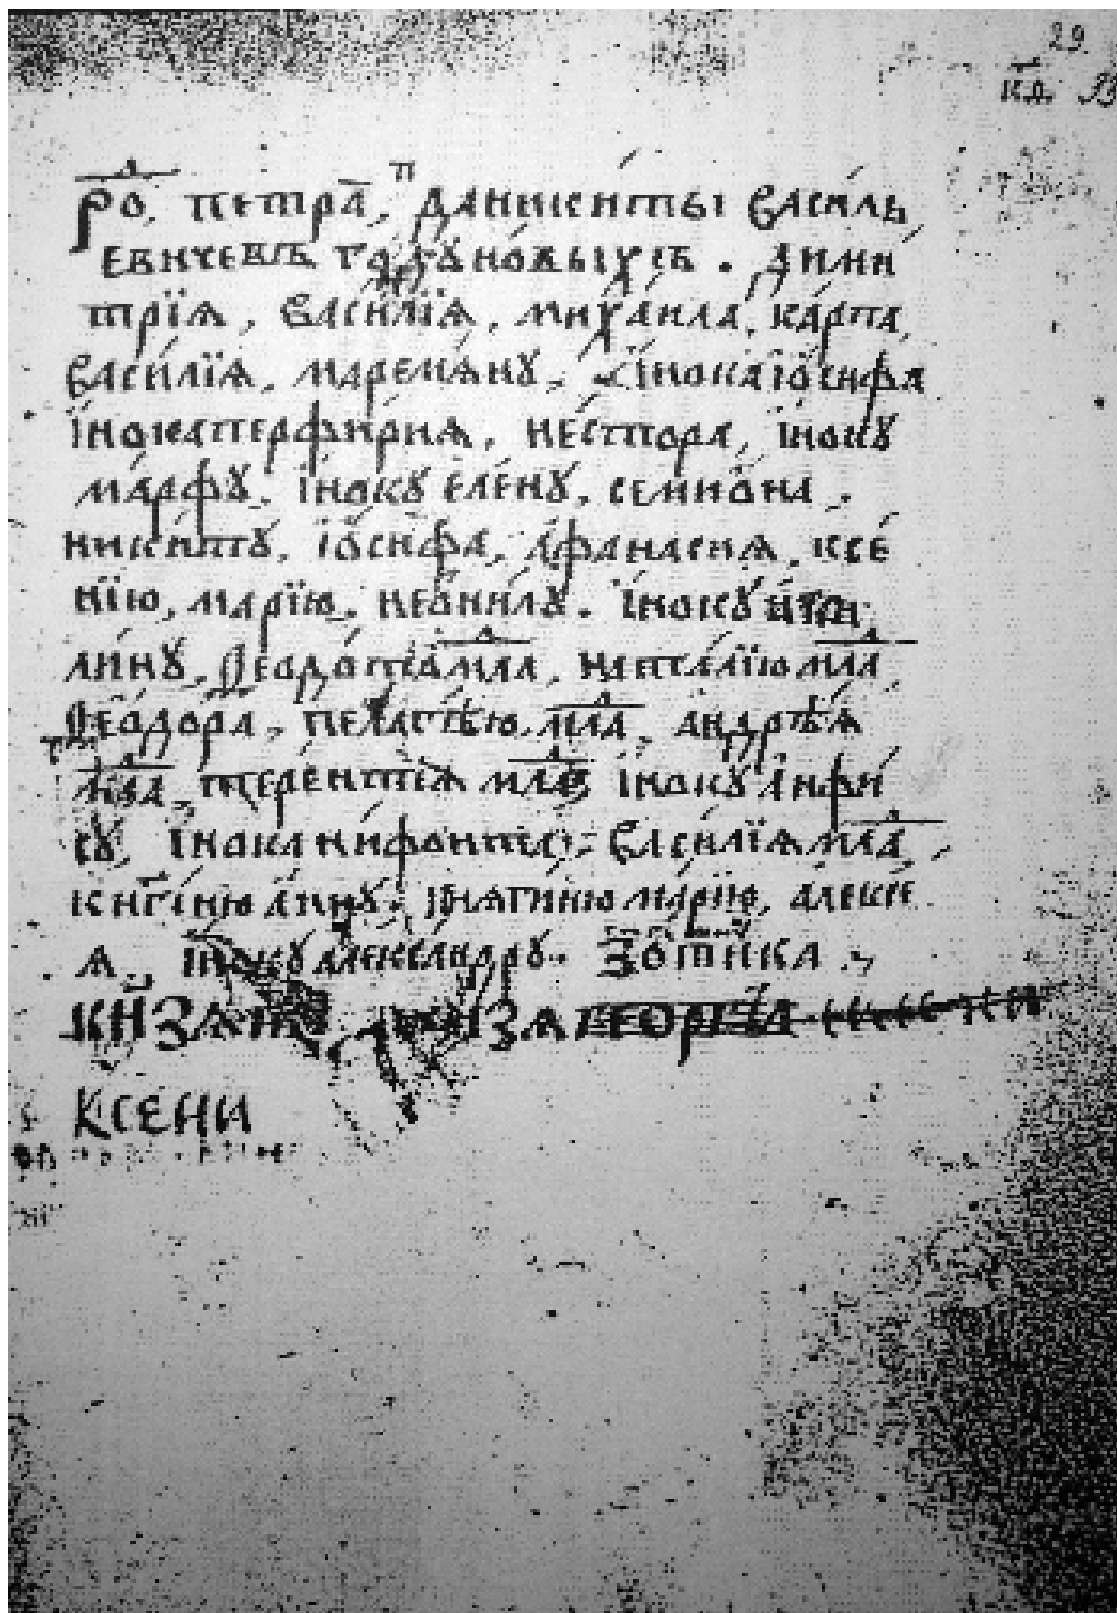 29
к҃д
Ро, петра, даникиты василь
евичевъ го дуновыхъ. дими
трїѧ, василїѧ, михаила, карпа,
василїѧ, маремѧнꙋ, інока іѡсифа
інока перфириѧ, нестора, інокꙋ
марфꙋ, інокꙋ елену, семиѡна.
никитꙋ, іѡсифа, афанасиѧ, ксе
нїю, марїю, неѡнилꙋ. інокꙋ
линꙋ, ѳеодота мла, наталїю мла
ѳеодора, пелагѣю мла, андрѣѧ
мла, терентїѧ мла інокꙋ анфи
сꙋ, інока нифонта, василїѧ мла
кнгиню аннꙋ, кнѧгиню марїю, алексе
ѧ, інокꙋ александрꙋ. Зотика
ксени